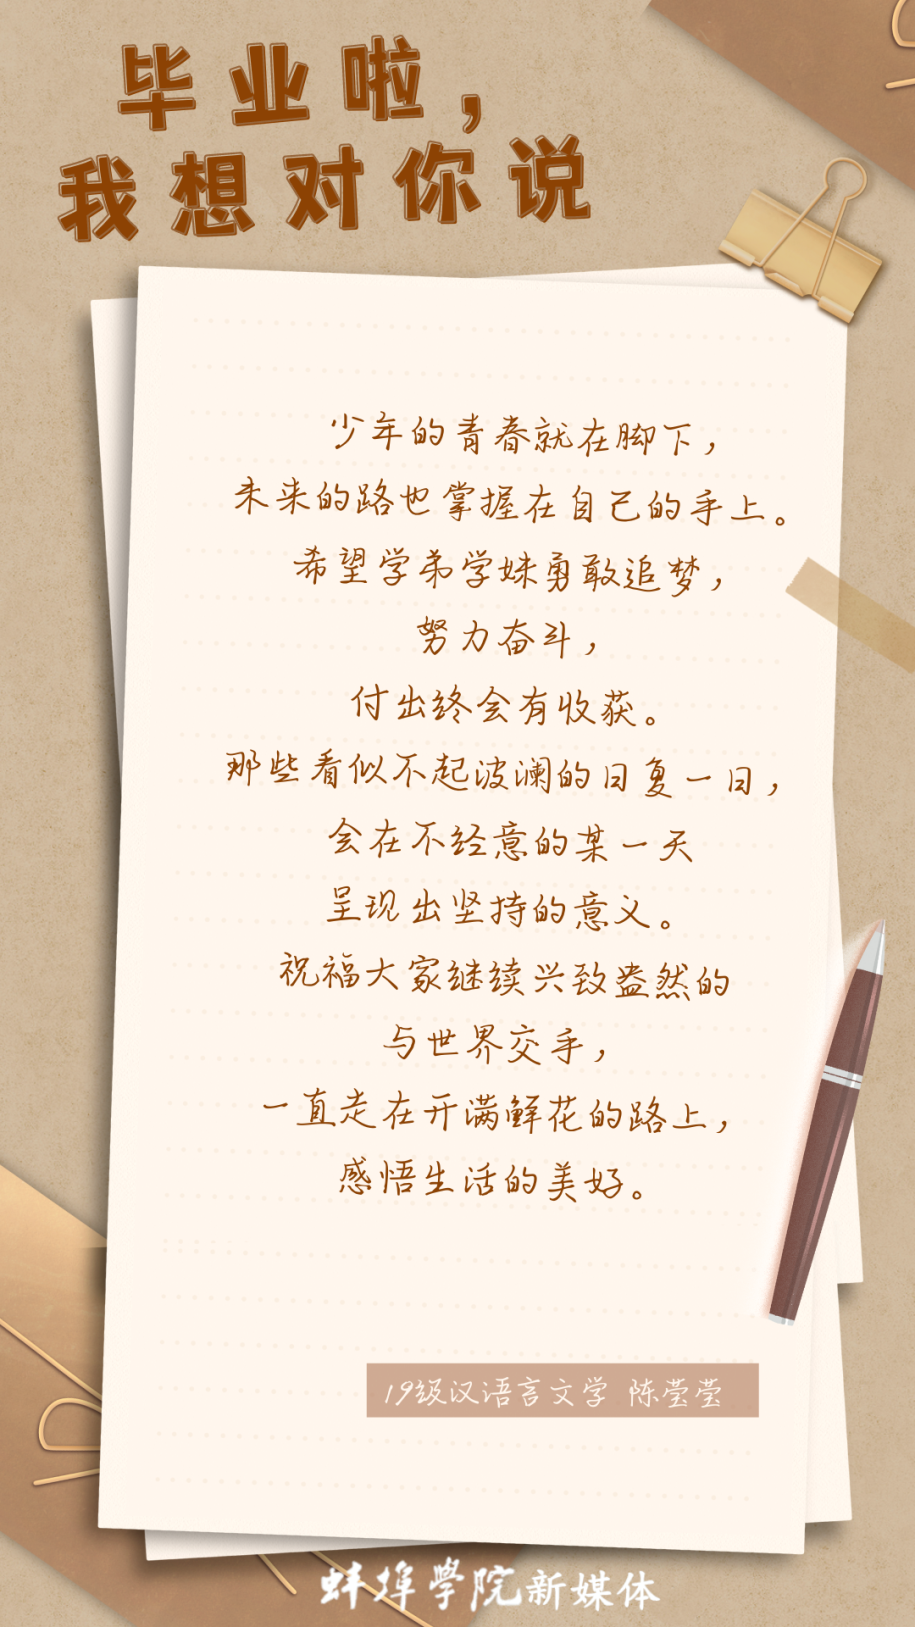 毕业啦，
我想对你说
少年的青春就在脚下，
未来的路也掌握在自己的手上。
希望学弟学妹勇敢追梦，
努力奋斗，
付出终会有收获。
那些看似不起波澜的日复一日，
会在不经意的某一天
呈现出坚持的意义。
祝福大家继续兴致盎然的
与世界交手，
一直走在开满鲜花的路上，
感悟生活的美好。
19级汉语言文学 陈莹莹
蚌埠學院新媒体